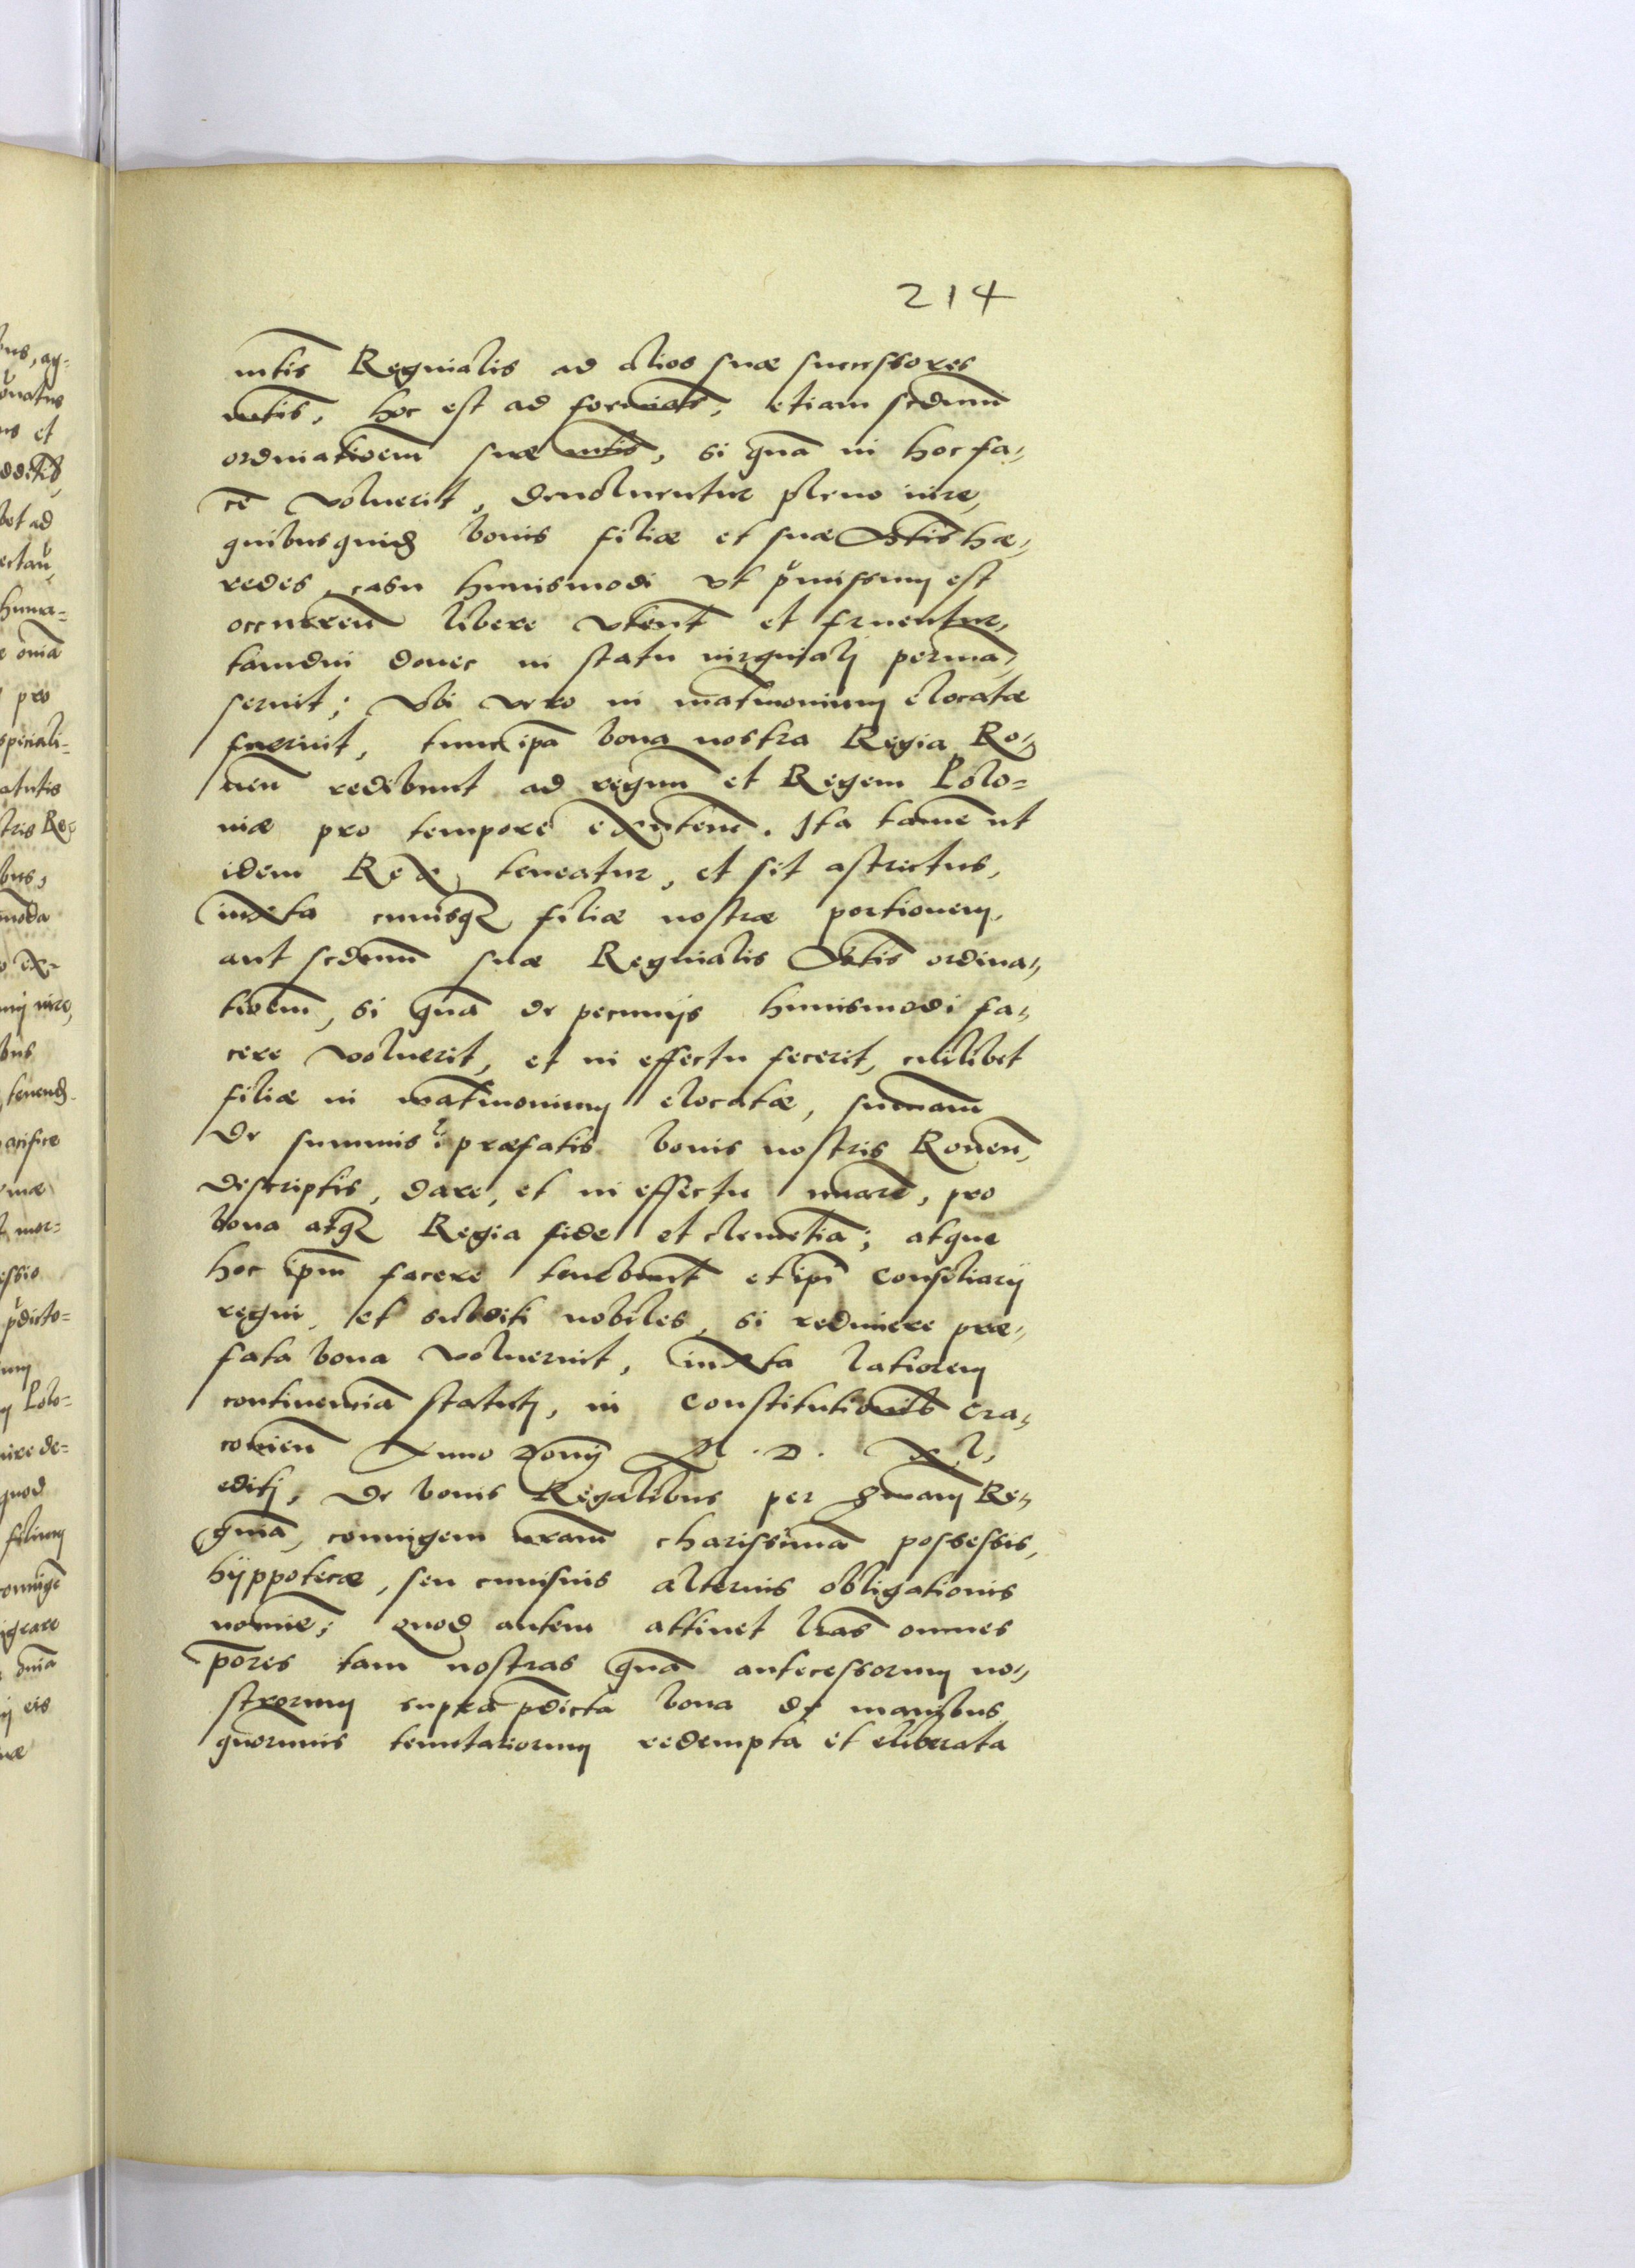 214
mtis Reginalis ad alios suæ successores
mtis, hoc est ad foeminas, etiam scdum
ordinatioem suæ mtis, si qua in hoc fa,,
ce voluerit, devoluentur pleno iure,
quibus quid bonis filiæ et suæ Mtis hæ,,
redes, casu huiusmodi vt pmissum est
occurren libere vtent et fruentur,
tamdiu donec in statu virginali perma,,
serint; Vbi vero in matmonium elocatæ
fuerint, tunc ipa bona nostra Regia Ro,,
uien redibunt ad regnm et Regem Polo=
niæ pro tempore existentem. Ita tame ut
idem Rex teneatur, et sit astrictus,
iuxta cuiusq filiæ nostræ portionem,
aut scdum suæ Reginalis Mtis ordina,,
tioem, si qua de pecunijs huiusmodi fa,,
cere voluerit, et in effectu fecerit, cuilibet
filiæ in matmonium elocatæ, summam
de summis i præfatis bonis nostris Rouien,
descriptis, dare, et in effectu nuare, pro
bona atq Regia fide et clemetia; atque
hoc ipm facere tenebunt et ipi Consiliarij
regni, et subditi nobiles, si redimere præ,,
fata bona voluerint, iuxta latiorem
continencia statuti, in Constitutionib Cra,,
couien Anno Domi M. D. XL,
editi, de bonis Regalibus per smam Re,,
gina, coniugem nram charissima possessis,
hyppotecæ, seu cuiusuis alterius obligationis
nomine; quod autem attinet lras omnes
pores tam nostras qua antecessorum no,,
strorum supra pdicta bona de manibus
quorumuis tenutariorum redempta et eliberata